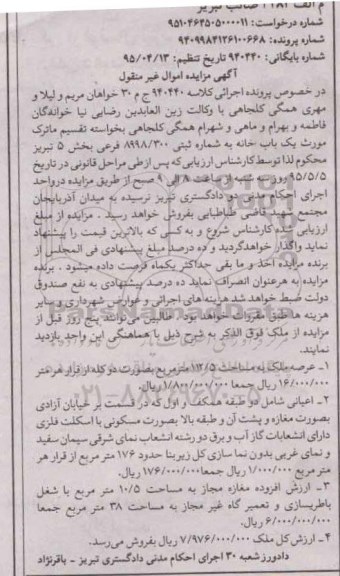 م الف ۲۲۸۱ صائب تبریز
شماره درخواست: ۹۵۱۰۴۶۳۵۰۵۰۰۰۰۱۱
شماره پرونده: ۹۴۰۹۹۸۴۱۲۶۱۰۰۶۶۸
شماره بایگانی: ۹۴۰۴۴۰ تاریخ تنظیم: ۹۵/۰۴/۱۳
آگهی مزایده اموال غیر منقول
در خصوص پرونده اجرائی کلاسه ۹۴۰۴۴۰ ج م ۳۰ خواهان مریم و لیلا و
مهری همگی کلجاهی با وکالت زین العابدین رضایی نیا خوانه‌گان
فاطمه و بهرام و ماهی و شهرام همگی کلجاهی بخواسته تقسیم ماترک
مورث یک باب خانه به شماره ثبتی ۸۹۹۸/۳۰۰ فرعی بخش ۵ تبریز
محکوم لذا توسط کارشناس ارزیابی که پس از طی مراحل قانونی در تاریخ
۹۵/۵/۵ روز سه شنبه از ساعت ۸ الی ۹ صبح از طریق مزایده در واحد
اجرای احکام مدنی دادگستری تبریز نرسیده به میدان آذربایجان
مجتمع شهید قاضی طباطبایی بفروش خواهد رسید. مزایده از مبلغ
ارزیابی شده کارشناس شروع و به کسی که بالاترین قیمت را پیشنهاد
نماید واگذار خواهدگردید و ده درصد مبلغ پیشنهادی فی المجلس از
برنده مزایده اخذ و ما بقی حداکثر یکماه فرصت داده میشود. برنده
مزایده به هرعنوان انصراف نماید ده درصد پیشنهادی به نفع صندوق
دولت ضبط خواهد شد هزینه های اجرائی و عوارض شهرداری و سایر
هزینه ها طبق مقررات خواهد بود. طالبین می‌توانند پنج روز قبل از
مزایده از ملک فوق الذکر به شرح ذیل با هماهنگی این واحد بازدید
نمایند.
۱- عرصه ملک به مساحت ۱۱۲/۵ مترمربع بصورت دو کله از قرار هر متر
۱۶/۰۰۰/۰۰۰ ریال جمعا ۱/۸۰۰/۰۰۰/۰۰۰ ریال.
۲- اعیانی شامل دو طبقه همکف و اول که در قسمت بر خیابان آزادی
بصورت مغازه و پشت آن و طبقه بالا بصورت مسکونی با اسکلت فلزی
دارای انشعابات گاز آب و برق دو رشته انشعاب نمای شرقی سیمان سفید
و نمای غربی بدون نما سازی کل زیربنا حدود ۱۷۶ متر مربع از قرار هر
متر مربع ۱/۰۰۰/۰۰۰ ریال جمعا ۱۷۶/۰۰۰/۰۰۰ ریال.
۳- ارزش افزوده مغازه مجاز به مساحت ۱۰/۵ متر مربع با شغل
باطریسازی و تعمیر گاه غیر مجاز به مساحت ۳۸ متر مربع جمعا
۶/۰۰۰/۰۰۰/۰۰۰ ریال.
۴- ارزش کل ملک ۷/۹۷۶/۰۰۰/۰۰۰ ریال بفروش می‌رسد.
دادورز شعبه ۳۰ اجرای احکام مدنی دادگستری تبریز - باقرنژاد